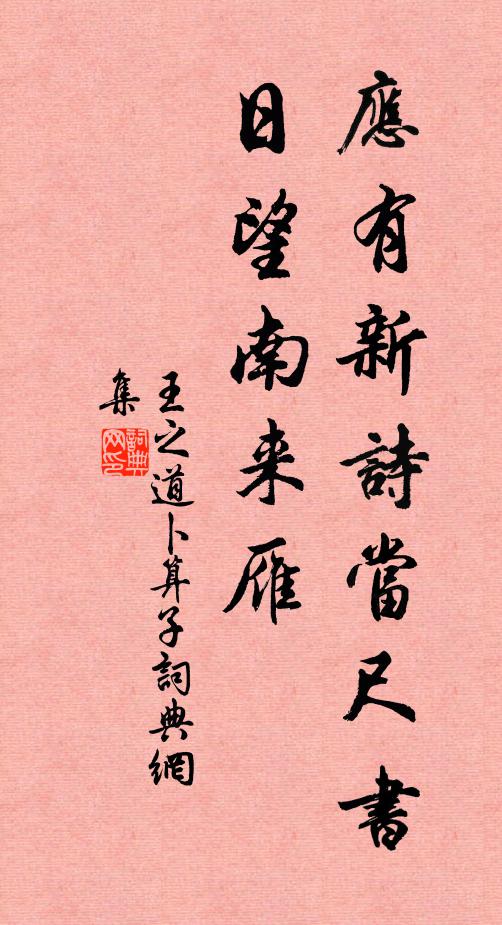 應有新詩當尺書
日望南来雁
王之道卜算子詞典網
集
詞典网印